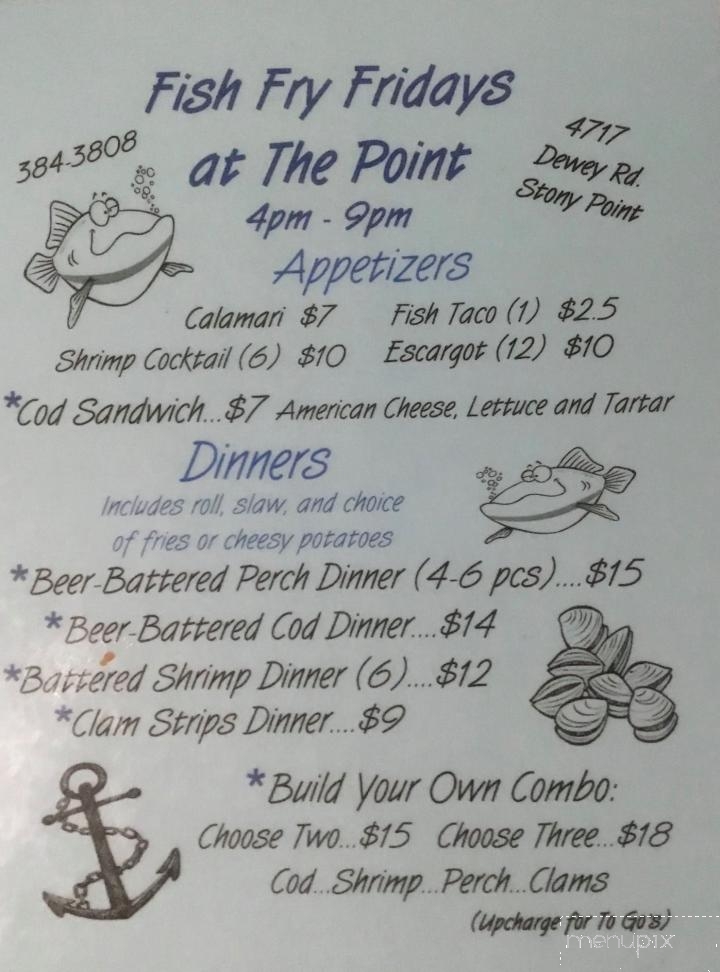 Fish Fry Fridays
at The Point
384-3808
4717
Dewey Rd.
Stony Point
4pm - 9pm
Appetizers
Calamari $7 Fish Taco (1) $2.5
Shrimp Cocktail (6) $10 Escargot (12) $10
*Cod Sandwich...$7 American Cheese, Lettuce and Tartar
Dinners
Includes roll, slaw, and choice
of fries or cheesy potatoes
*Beer-Battered Perch Dinner (4-6 pcs)....$15
*Beer-Battered Cod Dinner....$14
*Battered Shrimp Dinner (6)....$12
*Clam Strips Dinner....$9
*Build Your Own Combo:
Choose Two...$15 Choose Three...$18
Cod...Shrimp...Perch...Clams
(Upcharge for To Go's)
menupix